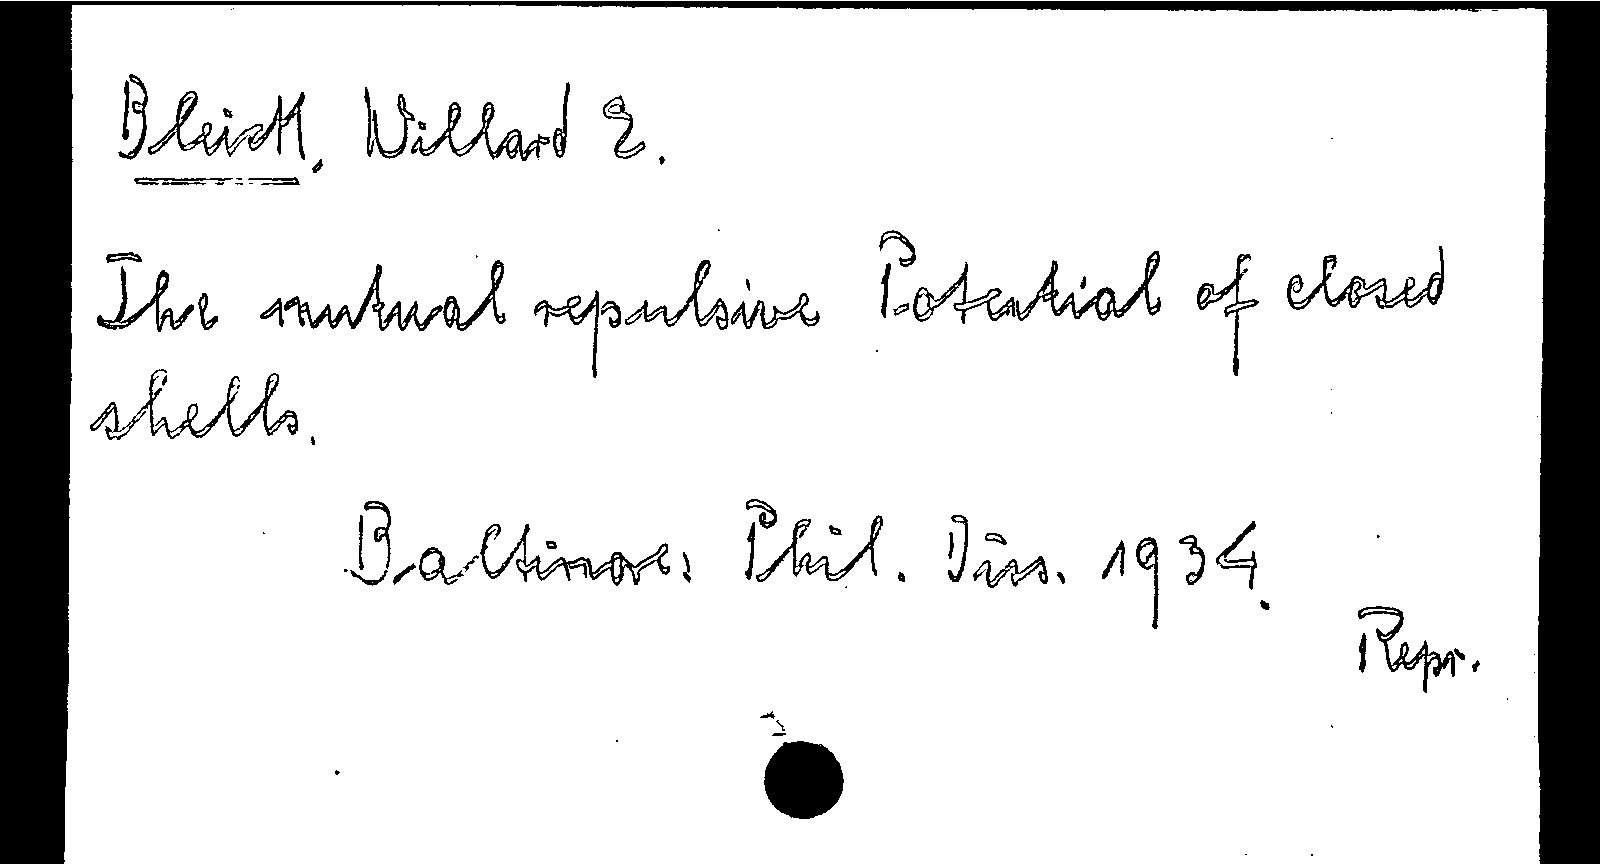 Bleick, Willard E.
The mutual repulsive Potential of closed
shells.
Baltimore: Phil. Diss. 1934.
Repr.